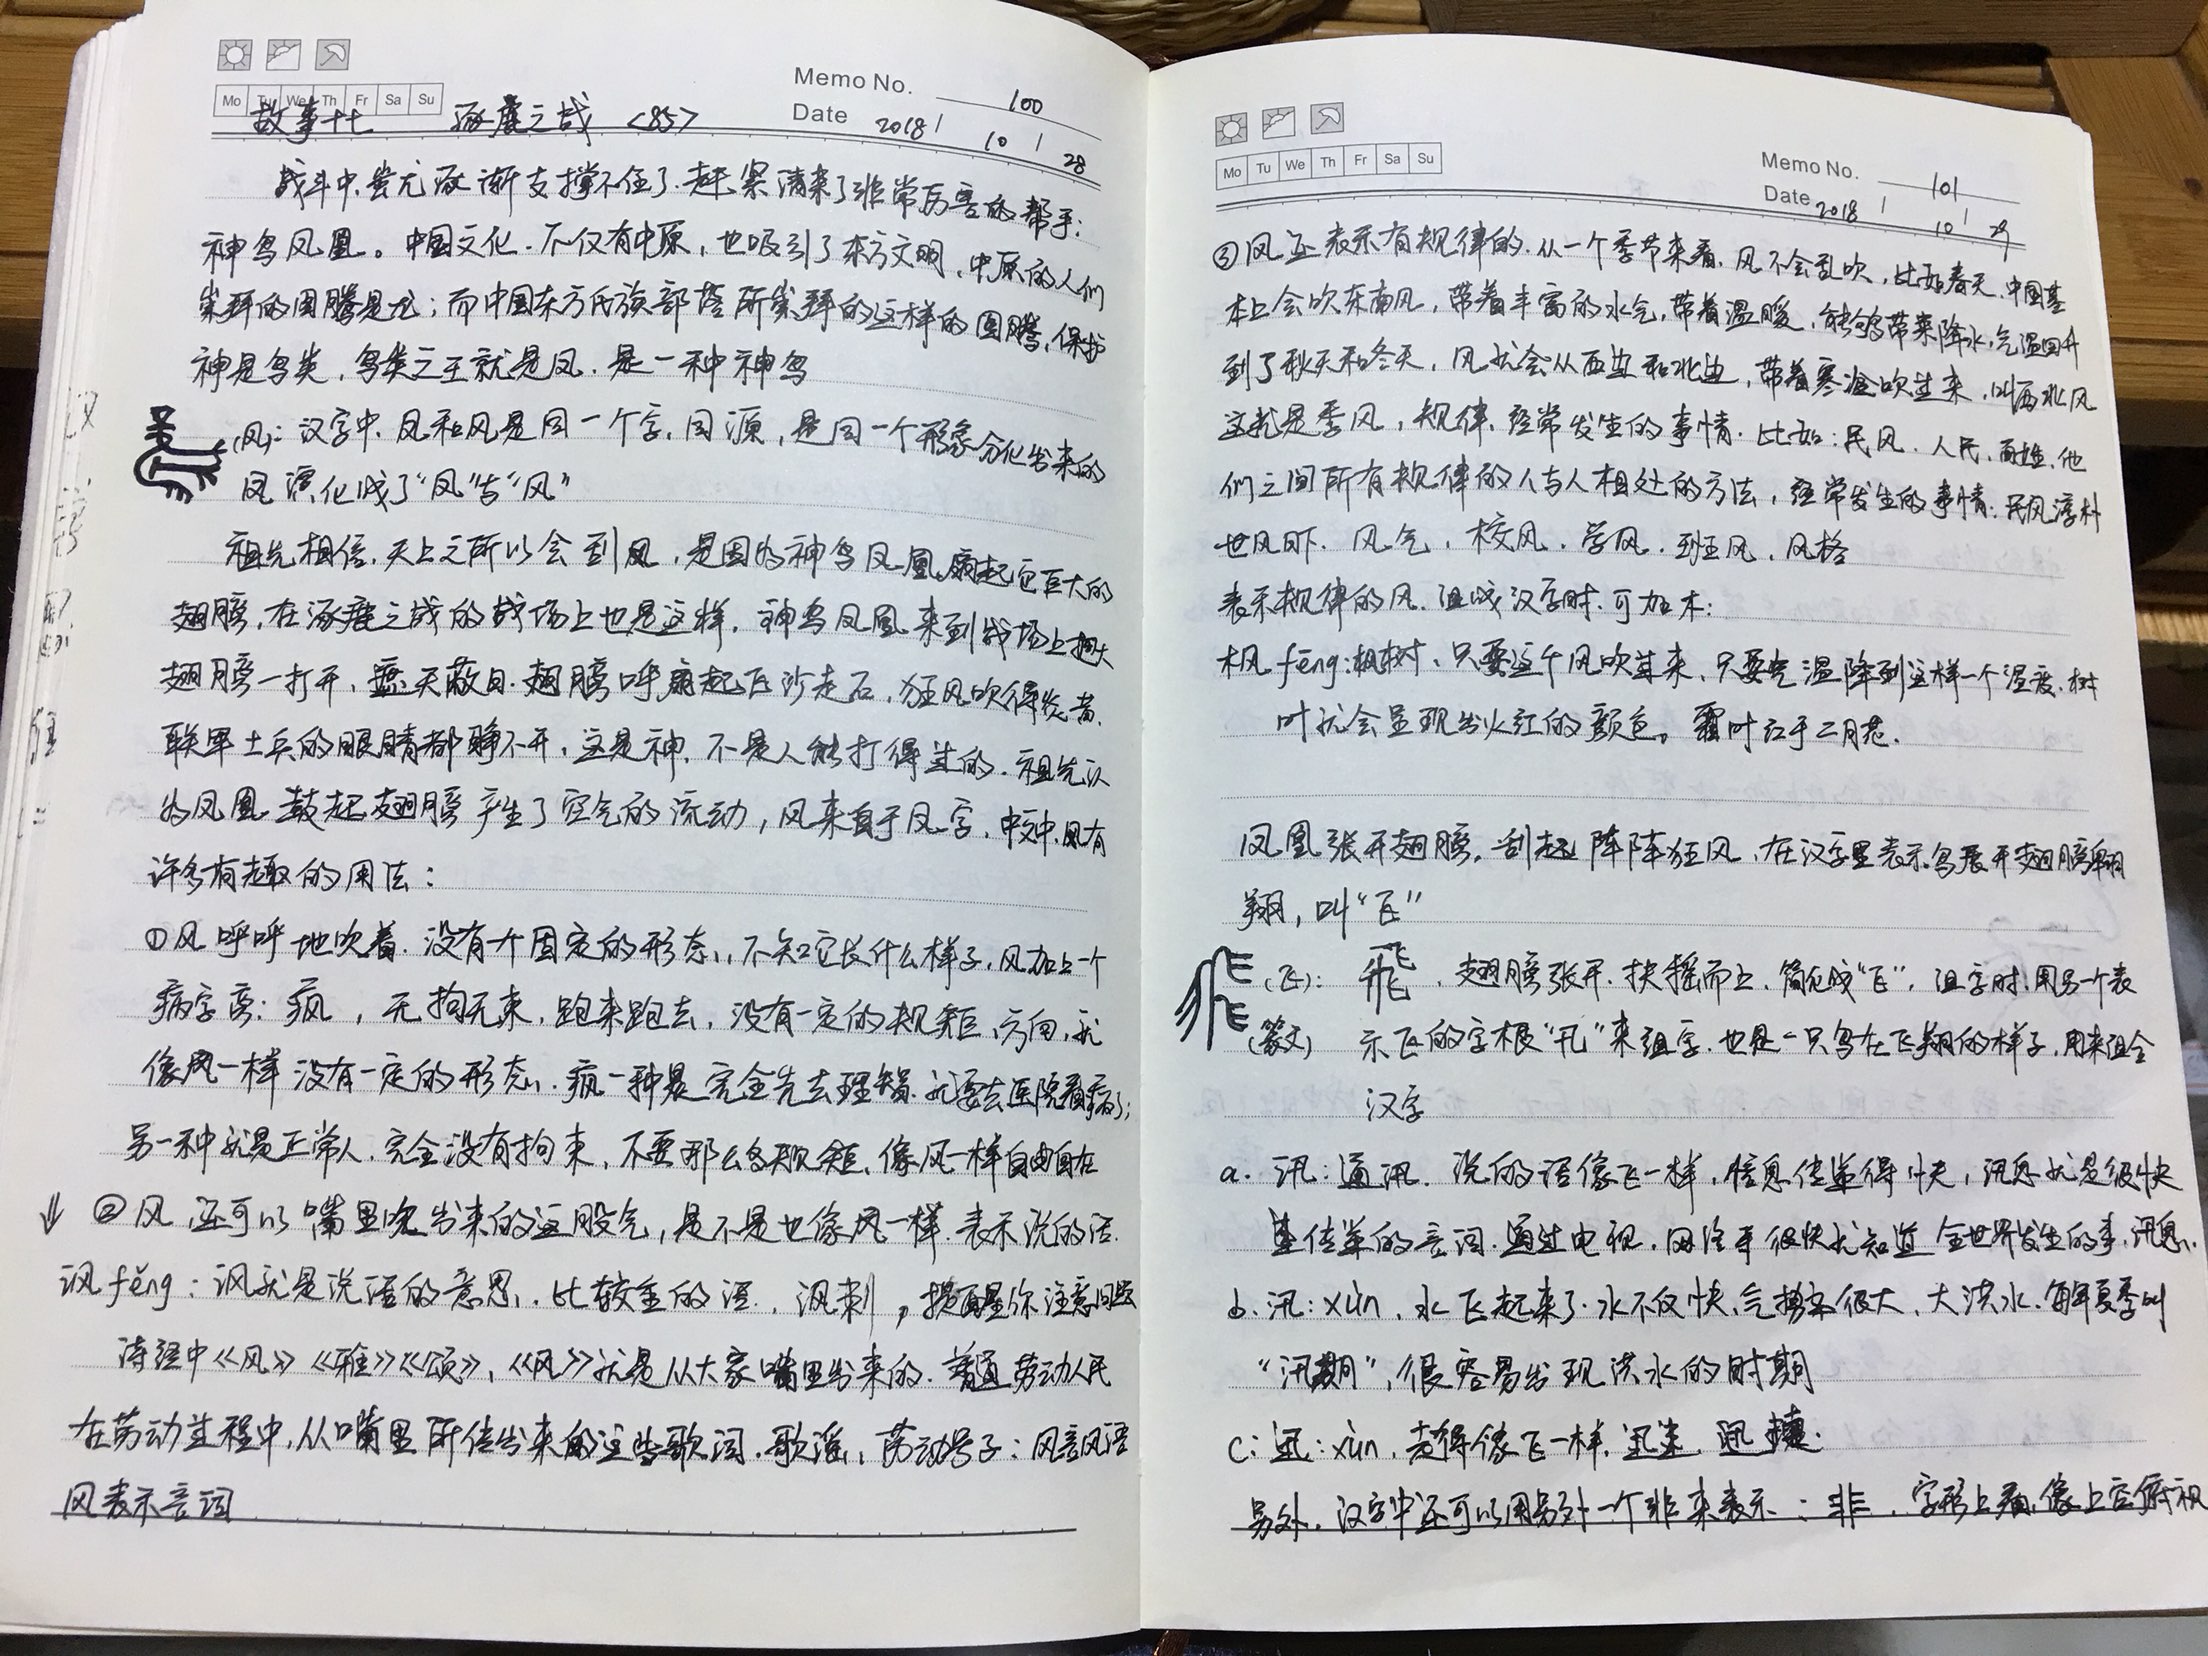 Mo Tu We Th Fr Sa Su
Memo No. 100
Date 2018 / 10 / 28
故事十七 涿鹿之战 <85>
战斗中,蚩尤逐渐支撑不住了.赶紧请来了非常厉害的帮手:
神鸟凤凰。中国文化.不仅有中原,也吸引了东方文明,中原的人们
崇拜的图腾是龙;而中国东方氏族部落所崇拜的这样的图腾,保护
神是鸟类,鸟类之王就是凤.是一种神鸟
(凤):汉字中.凤和风是同一个字,同源,是同一个形象分化出来的
凤演化成了“凤”与“风”
祖先相信,天上之所以会刮风,是因为神鸟凤凰扇起它巨大的
翅膀,在涿鹿之战的战场上也是这样,神鸟凤凰来到战场上
翅膀一打开,遮天蔽日.翅膀呼扇起飞沙走石,狂风吹得炎黄
联军士兵的眼睛都睁不开,这是神,不是人能打得过的.祖先认
为凤凰鼓起翅膀产生了空气的流动,风来自于凤字,中文中,风有
许多有趣的用法:
①风呼呼地吹着.没有个固定的形态,不知它长什么样子,风加上一个
病字旁:疯,无拘无束,跑来跑去,没有一定的规矩、方向,就
像风一样没有一定的形态.疯一种是完全失去理智.就要去医院看病了;
另一种就是正常人.完全没有拘束,不要那么多规矩,像风一样自由自在
↓ ②风还可以嘴里吹出来的这股气,是不是也像风一样.表示说的话.
讽fěng:讽就是说话的意思,比较重的话,讽刺,提醒你注意问题
诗经中《风》《雅》《颂》,《风》就是从大家嘴里出来的.普通劳动人民
在劳动过程中,从嘴里所传出来的这些歌词.歌谣,劳动号子:风言风语
风表示言词
Mo Tu We Th Fr Sa Su
Memo No. 101
Date 2018 / 10 / 29
③风还表示有规律的.从一个季节来看.风不会乱吹,比如春天.中国基
本上会吹东南风,带着丰富的水气,带着温暖,能够带来降水,气温回升
到了秋天和冬天,风就会从西边和北边,带着寒冷吹过来,叫西北风
这就是季风,规律.经常发生的事情.比如:民风.人民,百姓,他
们之间所有规律的人与人相处的方法,经常发生的事情:民风淳朴
世风日下.风气,校风.学风.班风.风格
表示规律的风.组成汉字时.可加木:
枫fēng:枫树,只要这个风吹过来,只要气温降到这样一个温度,树
叶就会呈现出火红的颜色。霜叶红于二月花.
凤凰张开翅膀,刮起阵阵狂风,在汉字里表示鸟展开翅膀翱
翔,叫“飞”
(飞): 飛,翅膀张开.扶摇而上,简化成“飞”,组字时,用另一个表
(篆文) 示飞的字根“卂”来组字.也是一只鸟在飞翔的样子,用来组合
汉字
a. 讯:通讯.说的话像飞一样,信息传递得快,讯息就是很快
速传递的言词.通过电视,网络等很快就知道全世界发生的事,讯息.
b. 汛:xùn,水飞起来了.水不仅快,气势还很大,大洪水.每年夏季叫
“汛期”,很容易出现洪水的时期
c: 迅:xùn,走得像飞一样,迅速,迅捷.
另外,汉字中还可以用另外一个非来表示:非,字形上看,像上空俯视